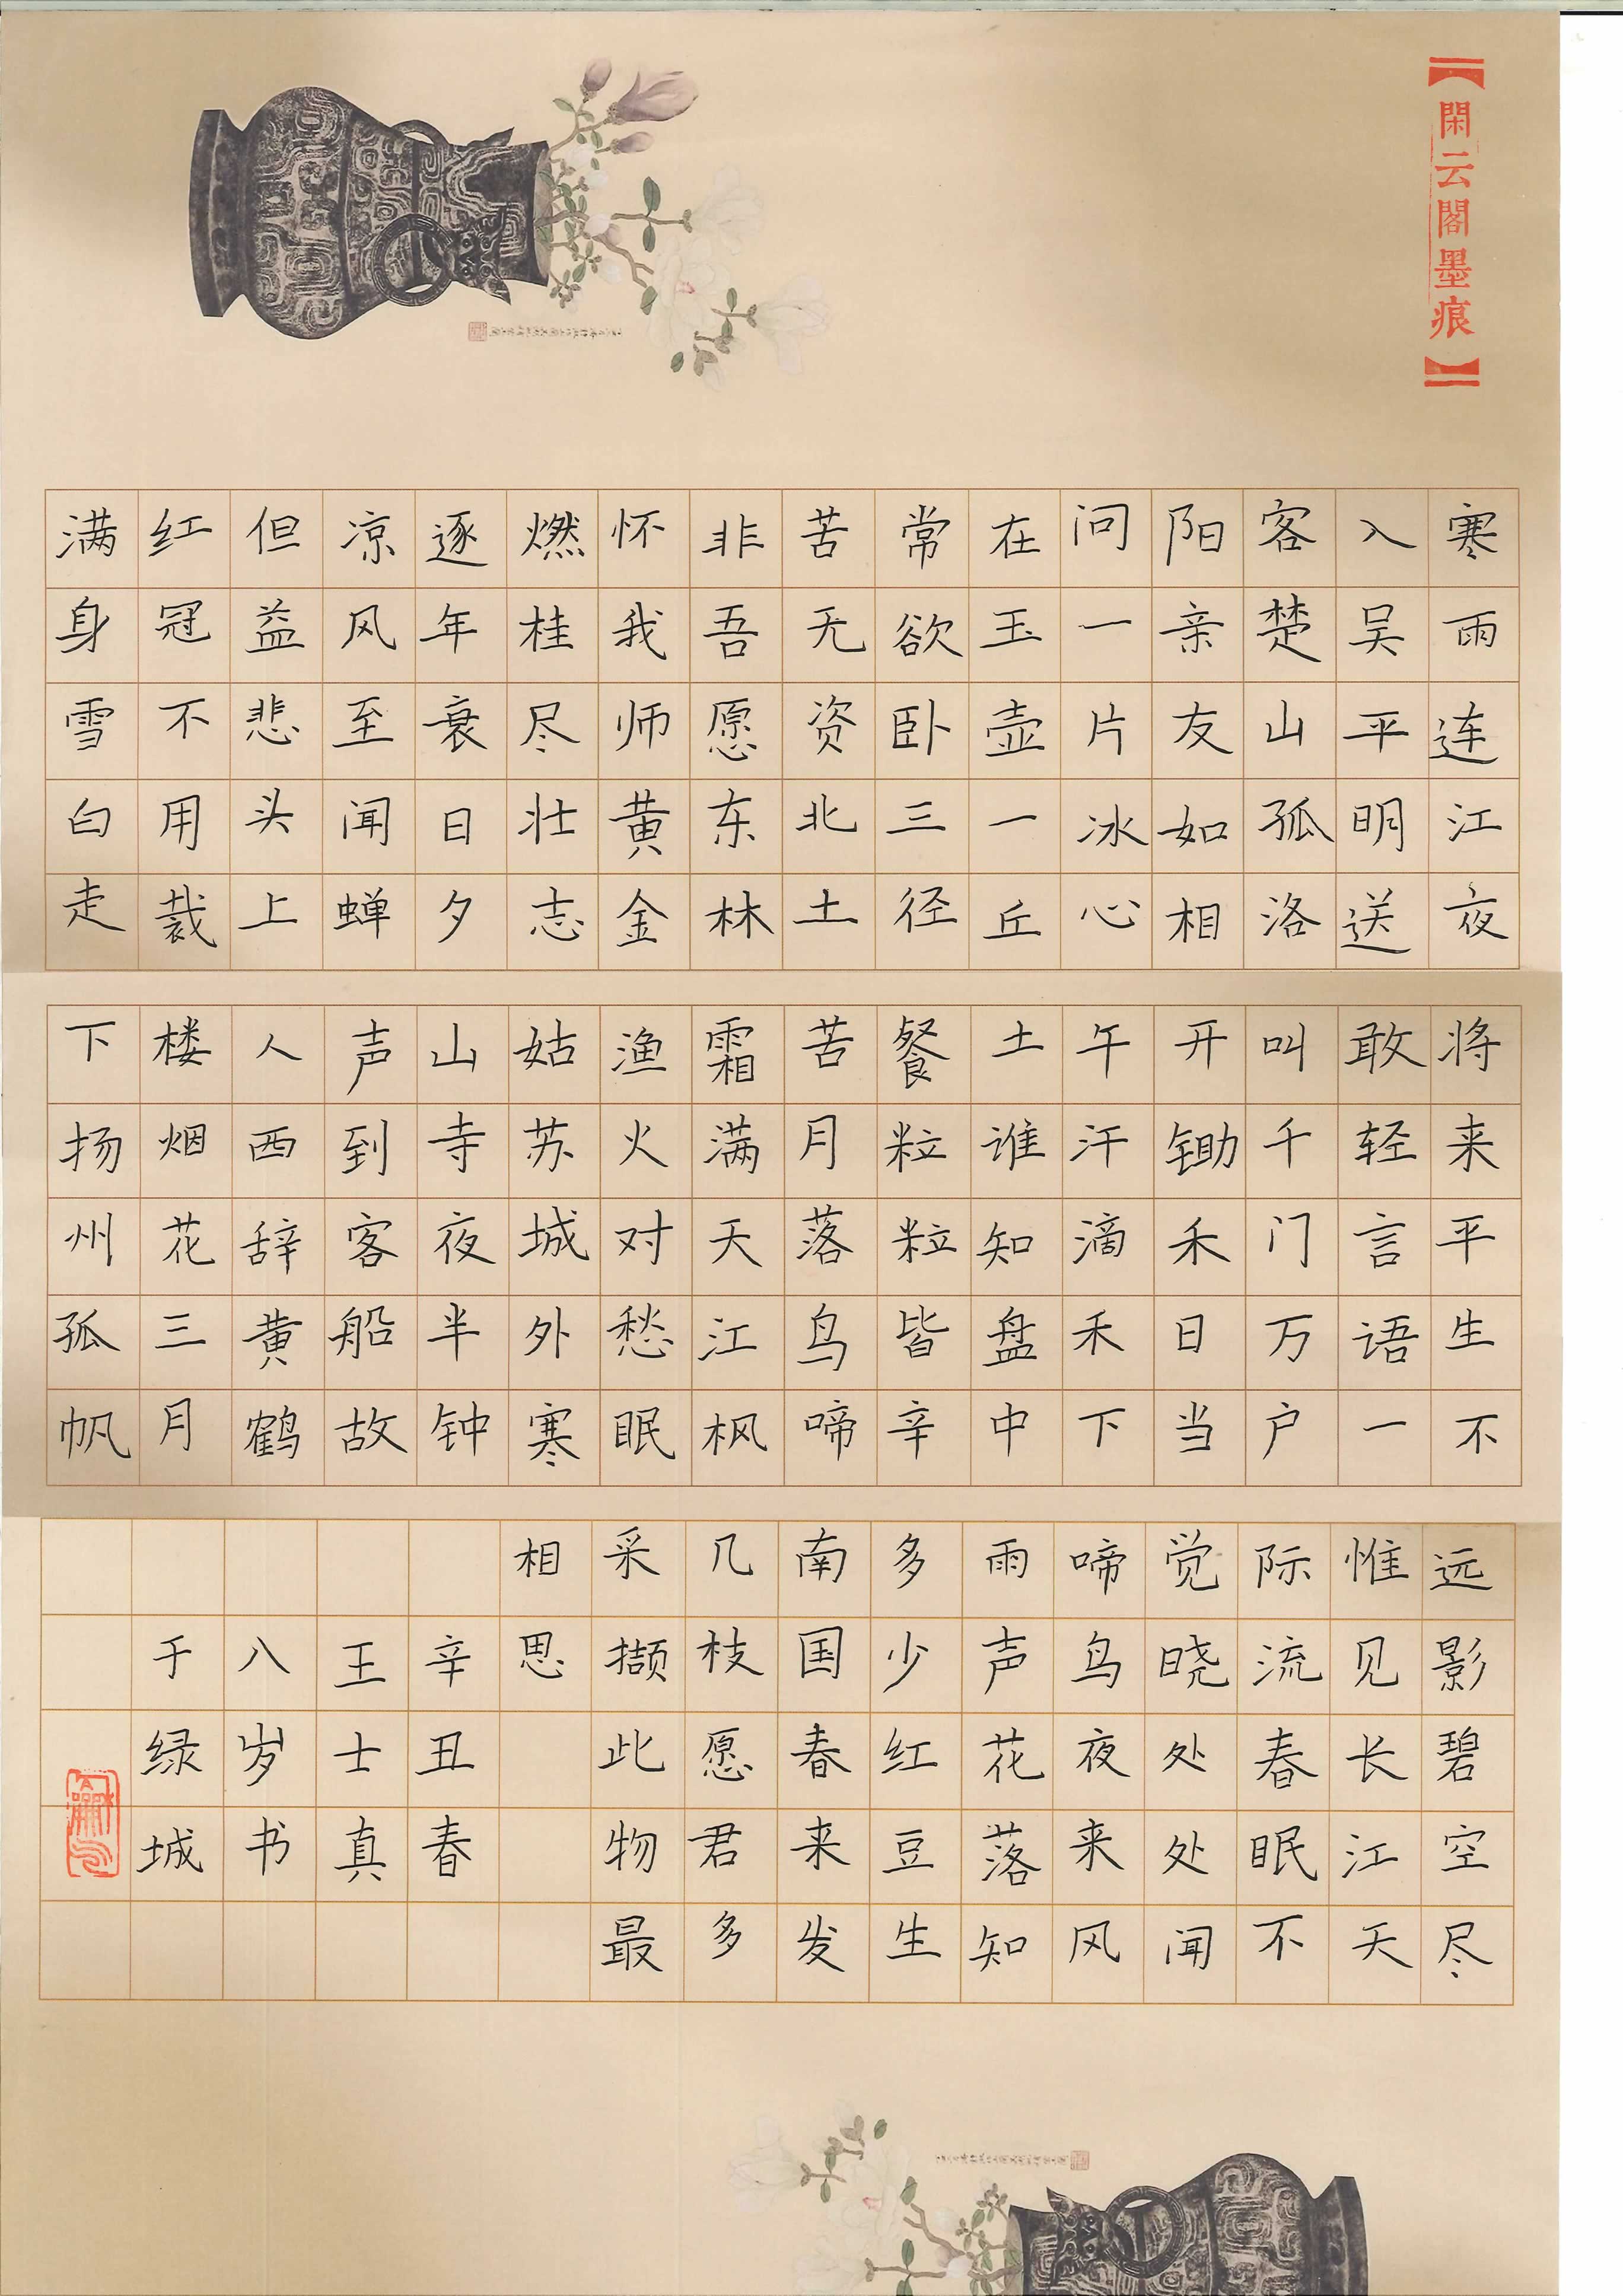 閑云閣墨痕
寒雨连江夜
入吴平明送
客楚山孤洛
阳亲友如相
问一片冰心
在玉壶一丘
常欲卧三径
苦无资北土
非吾愿东林
怀我师黄金
燃桂尽壮志
逐年衰日夕
凉风至闻蝉
但益悲头上
红冠不用裁
满身雪白走
将来平生不
敢轻言语一
叫千门万户
开锄禾日当
午汗滴禾下
土谁知盘中
餐粒粒皆辛
苦月落乌啼
霜满天江枫
渔火对愁眠
姑苏城外寒
山寺夜半钟
声到客船故
人西辞黄鹤
楼烟花三月
下扬州孤帆
远影碧空尽
惟见长江天
际流春眠不
觉晓处处闻
啼鸟夜来风
雨声花落知
多少红豆生
南国春来发
几枝愿君多
采撷此物最
相思
辛丑春
王士真
八岁书
于绿城